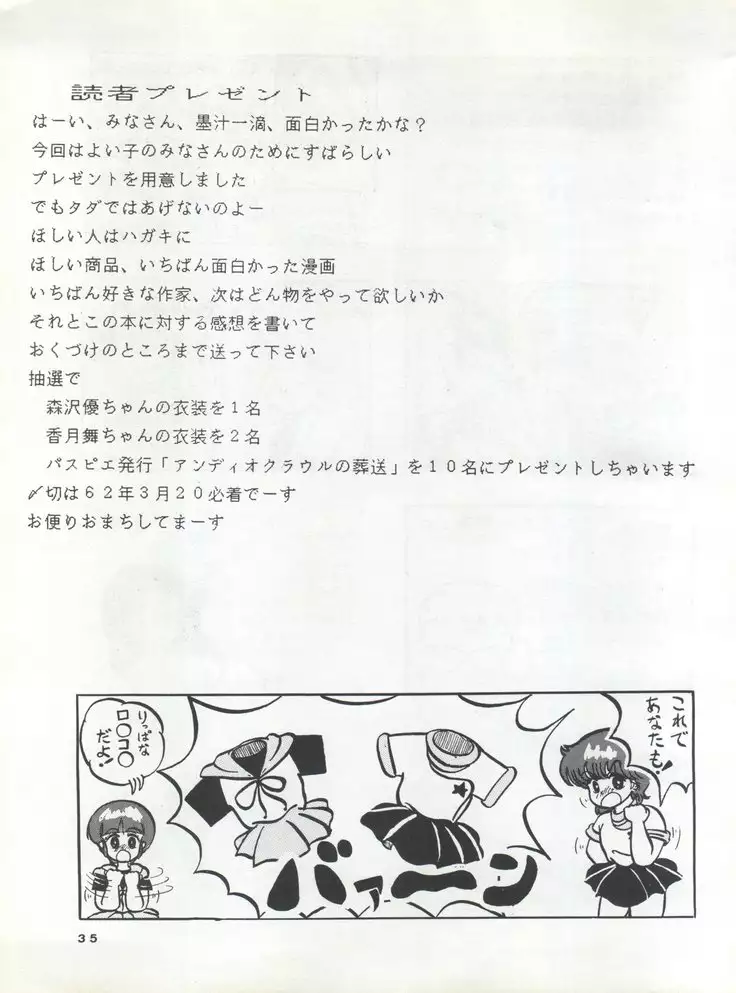 読者プレゼント
はーい、みなさん、墨汁一滴、面白かったかな？
今回はよい子のみなさんのためにすばらしい
プレゼントを用意しました
でもタダではあげないのよー
ほしい人はハガキに
ほしい商品、いちばん面白かった漫画
いちばん好きな作家、次はどん物をやって欲しいか
それとこの本に対する感想を書いて
おくづけのところまで送って下さい
抽選で
森沢優ちゃんの衣装を１名
香月舞ちゃんの衣装を２名
パスピエ発行「アンディオクラウルの葬送」を１０名にプレゼントしちゃいます
〆切は６２年３月２０必着でーす
お便りおまちしてまーす
これで
あなたも!
バァーン
りっぱな
ロ〇コ〇
だよ!
35